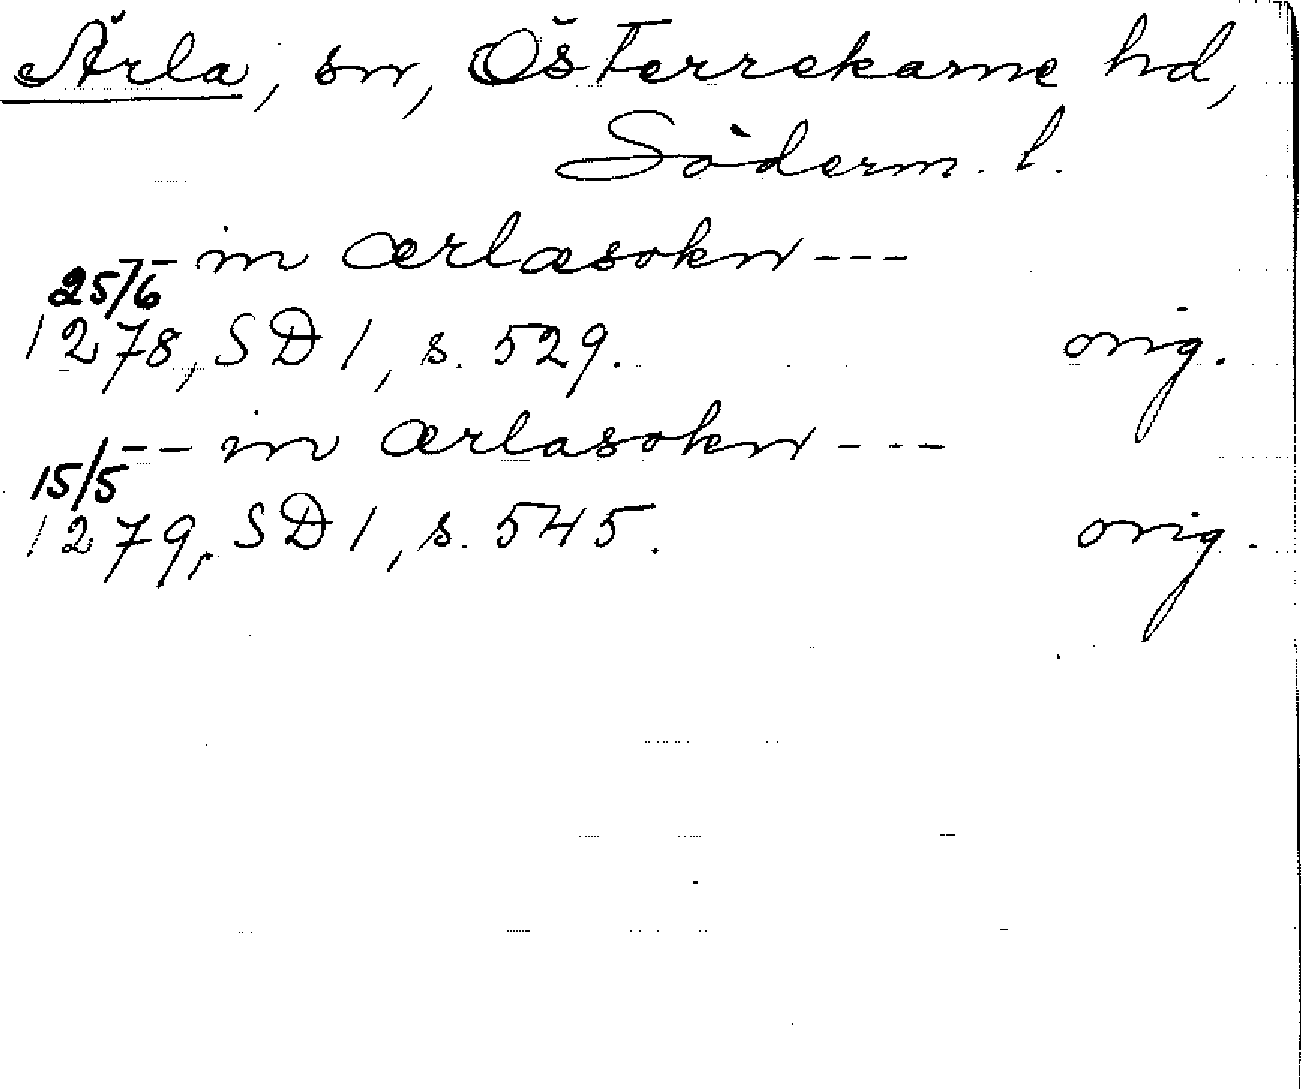 Ärla, sn, Österrekarne hd,
Söderm. l.
--- in ærlæsokn ---
25/6
1278, SD 1, s. 529. orig.
--- in ærlasokn ---
15/5
1279, SD 1, s. 545. orig.